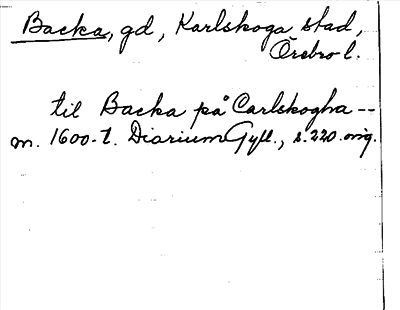 Backa, gd, Karlskoga stad,
Örebro l.
til Backa på Carlskogha --
m. 1600-t. Diarium Gyll., s. 220. orig.